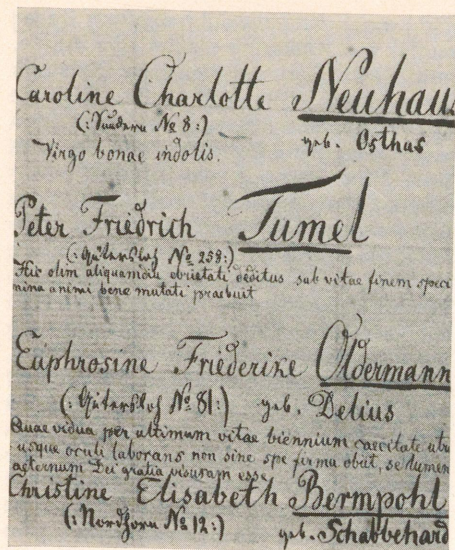 Caroline Charlotte Neuhaus
(: Sundern № 8 :)
geb. Osthus
Virgo bonae indolis.
Peter Friedrich Tumel
(: Gütersloh № 258 :)
Hic olim aliquamdiu ebrietati deditus sub vitae finem speci
mina animi bene mutati praebuit
Euphrosine Friederike Oldermann
(: Gütersloh № 81 :) geb. Delius
Quae vidua per ultimum vitae biennium caecitate utri
usque oculi laborans non sine spe firma obiit, se lumen
aeternum Dei gratia visuram esse
Christine Elisabeth Bermpohl
(: Nordhorn № 12 :) geb. Schabbehard